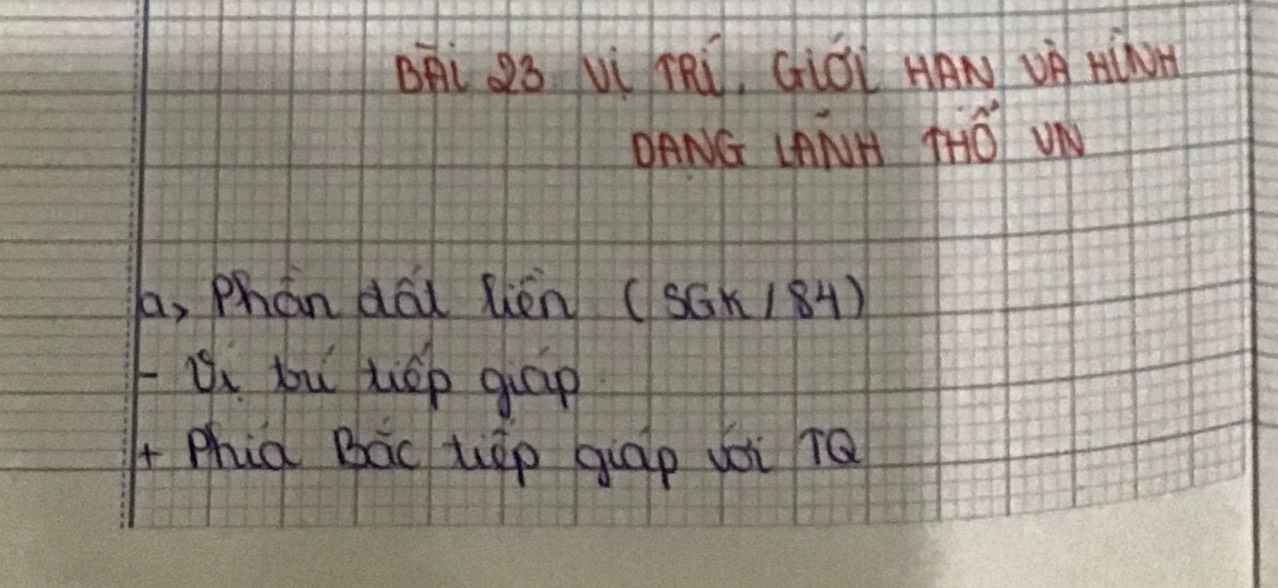 BÀI 23 VỊ TRÍ, GIỚI HẠN VÀ HÌNH
DẠNG LÃNH THỔ VN
a, Phần đất liền (SGK/84)
- Vị trí tiếp giáp
+ Phía Bắc tiếp giáp với TQ